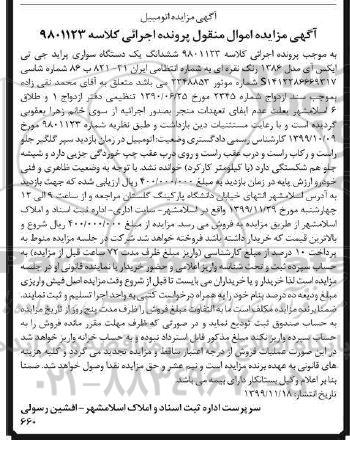 آگهی مزایده اتومبیل
آگهی مزایده اموال منقول پرونده اجرائی کلاسه ۹۸۰۱۱۲۳
به موجب پرونده اجرائی کلاسه ۹۸۰۱۱۲۳ ششدانگ یک دستگاه سواری پراید جی تی
ایکس آی مدل ۱۳۸۶ رنگ نقره ای به شماره انتظامی ایران ۲۱-۸۲۱ ب ۸۶ شماره شاسی
S۱۴۱۲۲۸۶۶۶۹۳۱۷ شماره موتور ۲۲۴۸۸۵۳ می باشد متعلق به آقای محمد نقی زاده
بموجب سند ازدواج شماره ۲۳۴۵ مورخ ۱۳۹۰/۰۶/۲۵ تنظیمی دفتر ازدواج ۱ و طلاق
۶ اسلامشهر بعلت عدم ایفای تعهدات منجر بصدور اجرائیه از سوی خانم زهرا یعقوبی
گردیده است و با رعایت مستثنیات دین بازداشت و طبق نظریه شماره ۹۸۰۱۱۲۳ مورخ
۱۳۹۹/۱۰/۰۹ کارشناس رسمی دادگستری وضعیت: اتومبیل در زمان بازدید سپر گلگیر جلو
راست و رکاب راست و درب عقب راست و روی درب عقب چپ خوردگی جزیی دارد و شیشه
جلو هم شکستگی دارد (با کیلومتر کارکرد) خوانده نشد. با توجه به وضعیت ظاهری و فنی
خودرو ارزش پایه در زمان بازدید به مبلغ ۴۰۰/۰۰۰/۰۰۰ ریال ارزیابی شده که جهت بازدید
به آدرس اسلامشهر انتهای خیابان دانشگاه پارکینگ گلستان مراجعه و از ساعت ۹ الی ۱۲
چهارشنبه مورخ ۱۳۹۹/۱۱/۲۹ واقع در اسلامشهر-سایت اداری- اداره ثبت اسناد و املاک
اسلامشهر از طریق مزایده به فروش می رسد. مزایده از مبلغ ۴۰۰/۰۰۰/۰۰۰ ریال شروع و
بالاترین قیمت که خریدار داشته باشد فروخته خواهد شد. شرکت در جلسه مزایده منوط به
پرداخت ۱۰ درصد از مبلغ کارشناسی (واریز مبلغ ظرف مدت ۷۲ ساعت قبل از مزایده) به
حساب سپرده ثبت و تحت شناسه واریز اعلامی و حضور خریدار یا نماینده قانونی او در جلسه
مزایده است لذا خریدار و یا خریداران می بایست تا قبل از شروع وقت مزایده اصل فیش واریزی
مبلغ ودیعه ده درصد بنام خود را به همراه درخواست کتبی به واحد اجرا تسلیم و ثبت نمایند.
ضمنا برنده مزایده مکلف است ما به التفاوت مبلغ فروش را ظرف مدت پنج روز از تاریخ مزایده
به حساب صندوق ثبت تودیع نماید و در صورتی که ظرف مهلت مقرر مانده فروش را به
حساب سپرده واریز نکند مبلغ مذکور قابل استرداد نبوده و به حساب خزانه واریز خواهد شد
در این صورت عملیات فروش از درجه اعتبار ساقط و مزایده تجدید می گردد و کلیه هزینه
های قانونی به عهده برنده مزایده است و نیم عشر و حق مزایده نقدا وصول خواهد شد. ضمنا
بنا بر اعلام وکیل بستانکار دارای بیمه می باشد.
تاریخ انتشار: ۱۳۹۹/۱۱/۱۸
سرپرست اداره ثبت اسناد و املاک اسلامشهر - افشین رسولی
۶۶۰